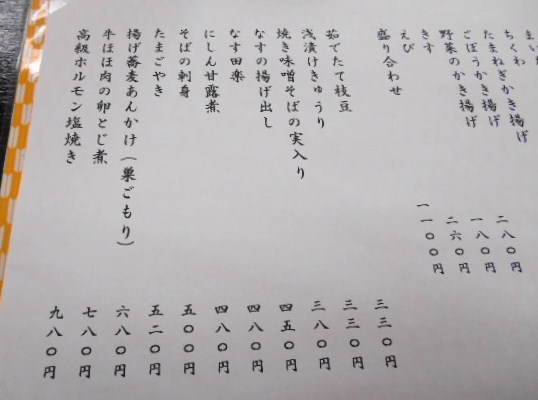 ちくわ
たまねぎかき揚げ
ごぼうかき揚げ
野菜のかき揚げ 二八〇円
きす 一八〇円
えび 二六〇円
盛り合わせ 一一〇〇円
茹でたて枝豆 三三〇円
浅漬けきゅうり 三三〇円
焼き味噌そばの実入り 三八〇円
なすの揚げ出し 四五〇円
なす田楽 四八〇円
にしん甘露煮 四八〇円
そばの刺身 五〇〇円
たまごやき 五二〇円
揚げ蕎麦あんかけ（巣ごもり） 六八〇円
牛ほほ肉の卵とじ煮 七八〇円
高級ホルモン塩焼き 九八〇円